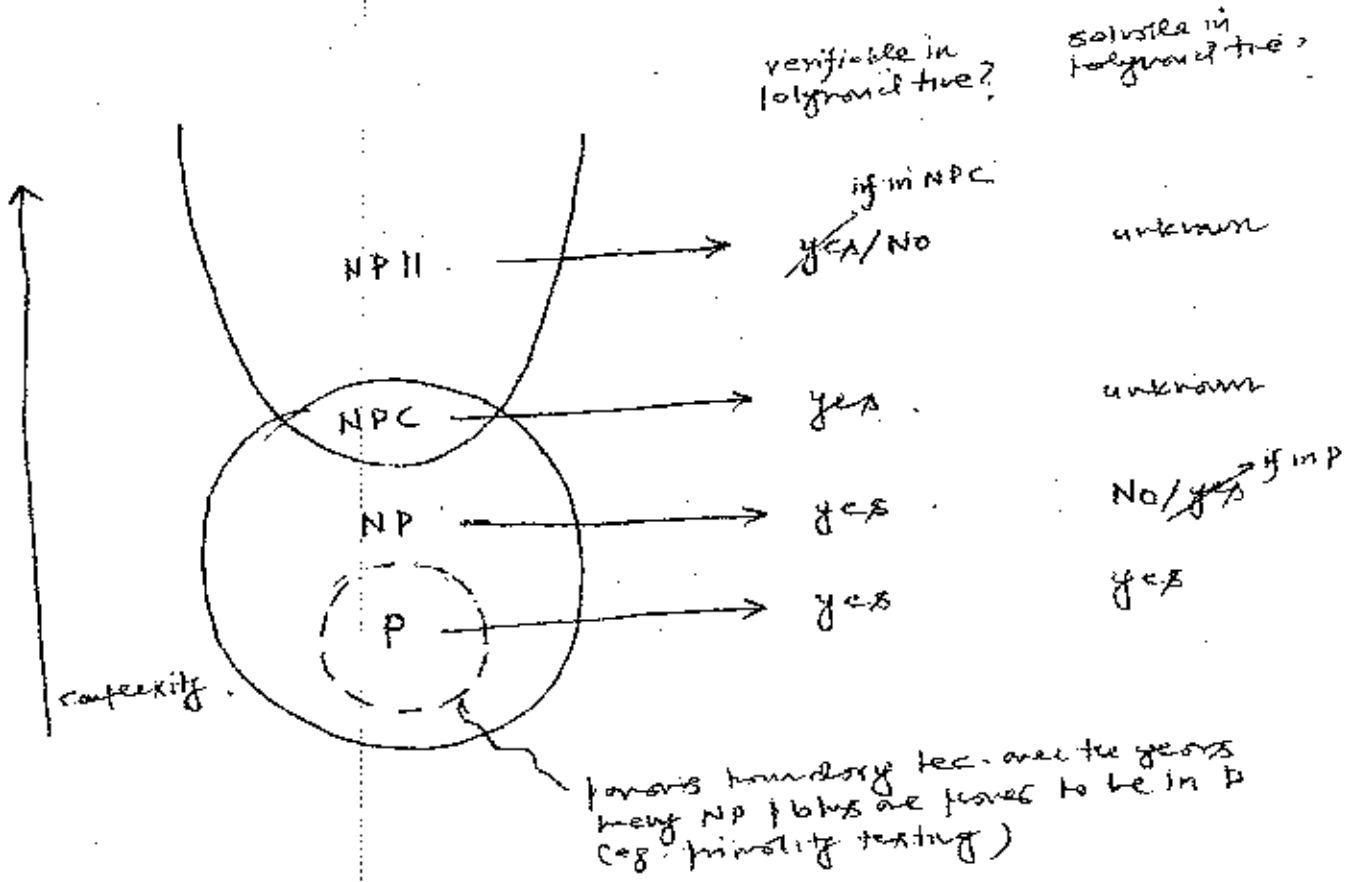 verifiable in
polynomial time?
solvable in
polynomial time?
if in NPC
NPH
yes/No
unknown
NPC
yes.
unknown
if in P
NP
yes
No/yes
P
yes
yes
complexity.
porous boundary bec. over the years
many NP pblms are proved to be in P
(eg. primality testing)